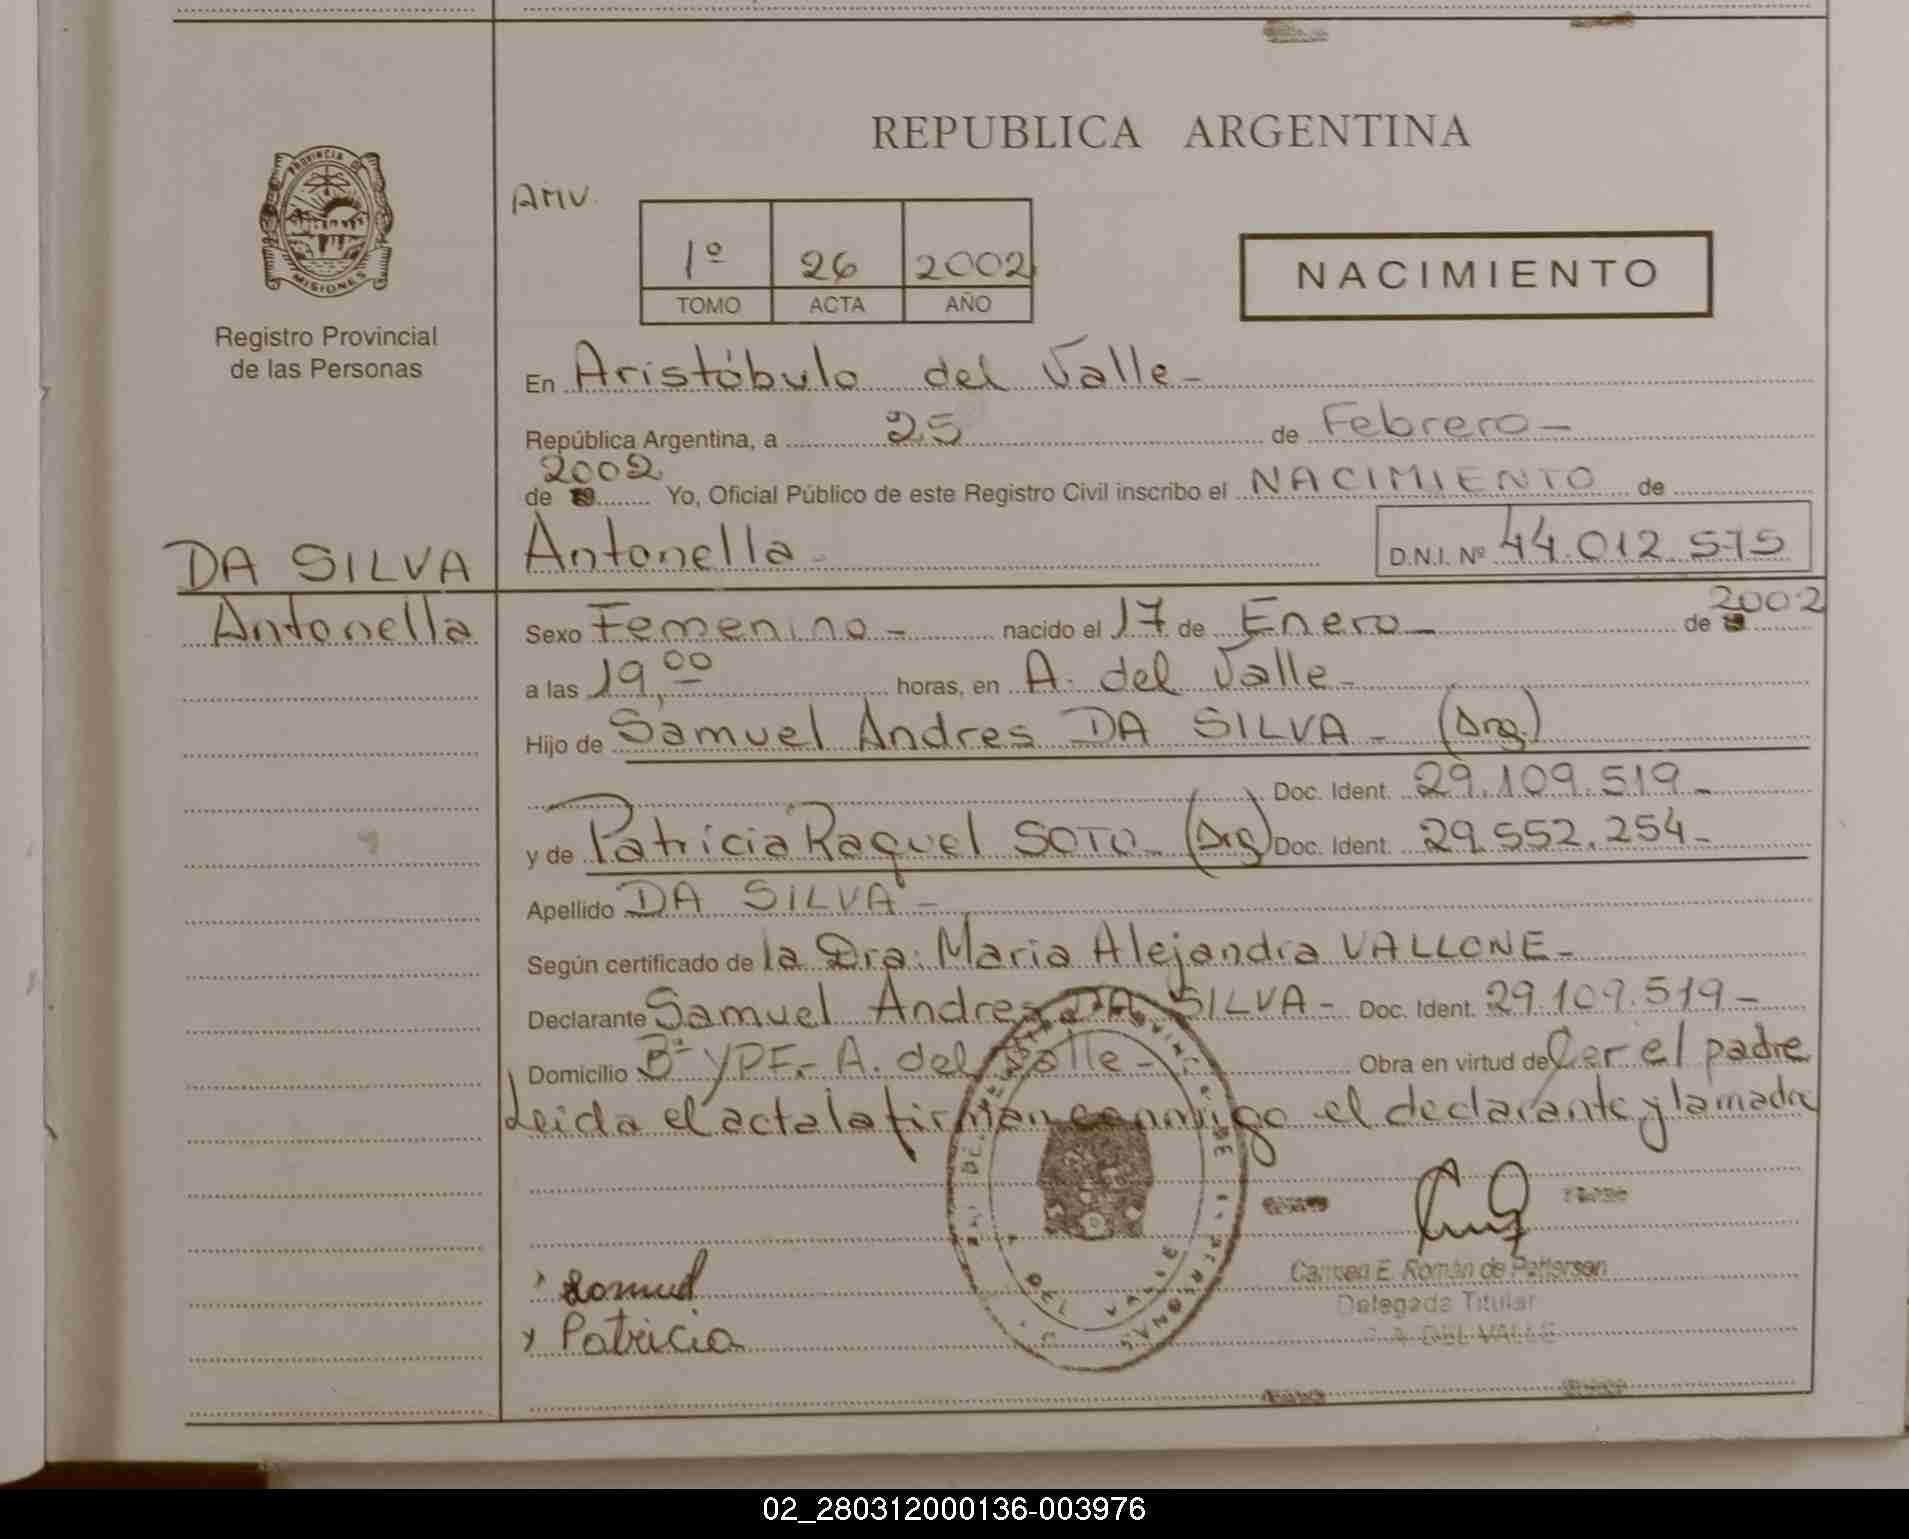 REPUBLICA ARGENTINA
PROVINCIA DE
MISIONES
Registro Provincial
de las Personas
1º 26 2002
TOMO ACTA AÑO
NACIMIENTO
En Aristóbulo del Valle-
República Argentina, a 25 de Febrero-
2002
de Yo, Oficial Público de este Registro Civil inscribo el NACIMIENTO de
DA SILVA Antonella- D.N.I. Nº 44.012.575
Antonella Sexo Femenino- nacido el 17 de Enero- de 2002
a las 19,00 horas, en A. del Valle-
Hijo de Samuel Andres DA SILVA- (Arg.)
Doc. Ident. 29.109.519-
y de Patricia Raquel SOTO- (Arg) Doc. Ident. 29.552.254-
Apellido DA SILVA-
Según certificado de la Dra. Maria Alejandra VALLONE-
Declarante Samuel Andres DA SILVA- Doc. Ident. 29.109.519-
Domicilio Bº YPF.- A. del Valle- Obra en virtud de Cer el padre
Leida el acta la firman conmigo el declarante y la madre
Carmen E. Román de Petterson
Delegada Titular
A. DEL VALLE
Samuel
x Patricia
02_280312000136-003976